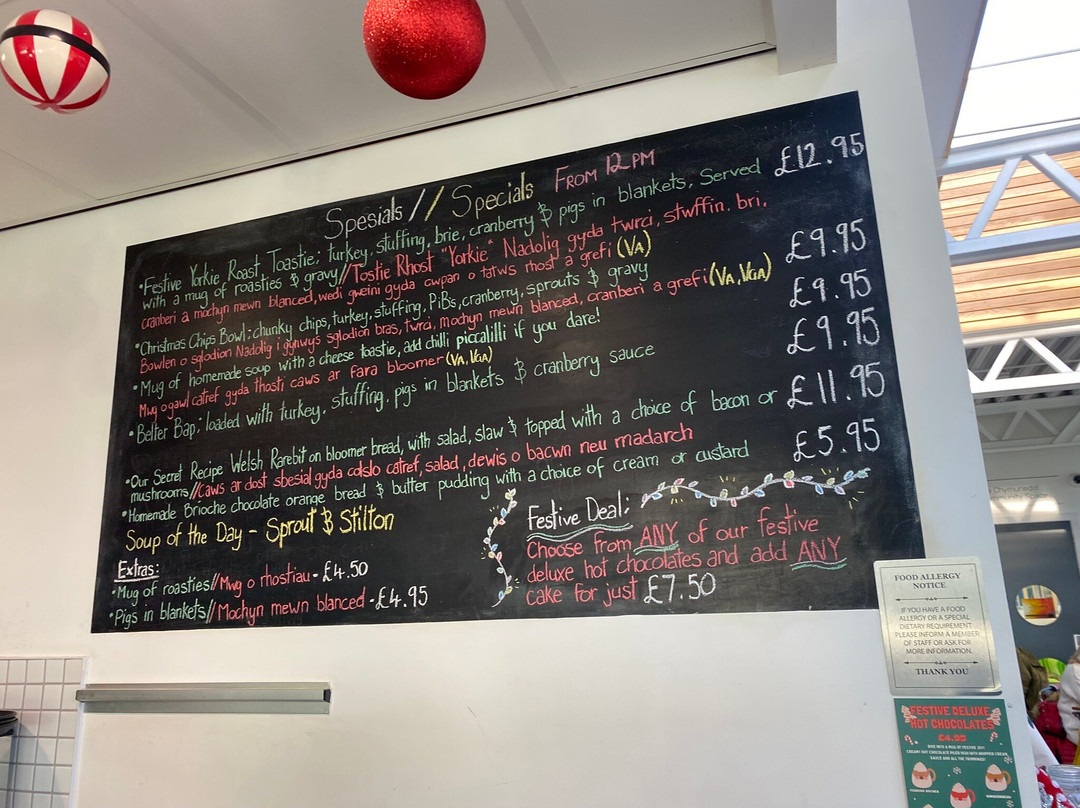 Spesials // Specials FROM 12PM
•Festive Yorkie Roast Toastie; turkey, stuffing, brie, cranberry & pigs in blankets. Served £12.95
with a mug of roasties & gravy//Tostie Rhost "Yorkie" Nadolig gyda twrci, stwffin. bri,
cranberi a mochyn mewn blanced, wedi gweini gyda cwpan o tatws rhost a grefi (VA)
•Christmas Chips Bowl; chunky chips, turkey, stuffing, PiBs, cranberry, sprouts & gravy £9.95
Bowlen o sglodion Nadolig i gynwys sglodion bras, twrci, mochyn mewn blanced, cranberi a grefi (VA, VGA)
•Mug of homemade soup with a cheese toastie, add chilli piccalilli if you dare! £9.95
Mwg o gawl catref gyda thosti caws ar fara bloomer (VA, VGA)
•Belter Bap; loaded with turkey, stuffing. pigs in blankets & cranberry sauce £9.95
•Our Secret Recipe Welsh Rarebit on bloomer bread, with salad, slaw & topped with a choice of bacon or £11.95
mushrooms//Caws ar dost sbesial gyda colslo catref, salad, dewis o bacwn neu madarch
•Homemade Brioche chocolate orange bread & butter pudding with a choice of cream or custard £5.95
Soup of the Day - Sprout & Stilton
Extras:
•Mug of roasties//Mwg o rhostiau - £4.50
•Pigs in blankets//Mochyn mewn blanced - £4.95
Festive Deal:
Choose from ANY of our festive
deluxe hot chocolates and add ANY
cake for just £7.50
FOOD ALLERGY
NOTICE
IF YOU HAVE A FOOD
ALLERGY OR A SPECIAL
DIETARY REQUIREMENT
PLEASE INFORM A MEMBER
OF STAFF OR ASK FOR
MORE INFORMATION.
THANK YOU
FESTIVE DELUXE
HOT CHOCOLATES
£4.95